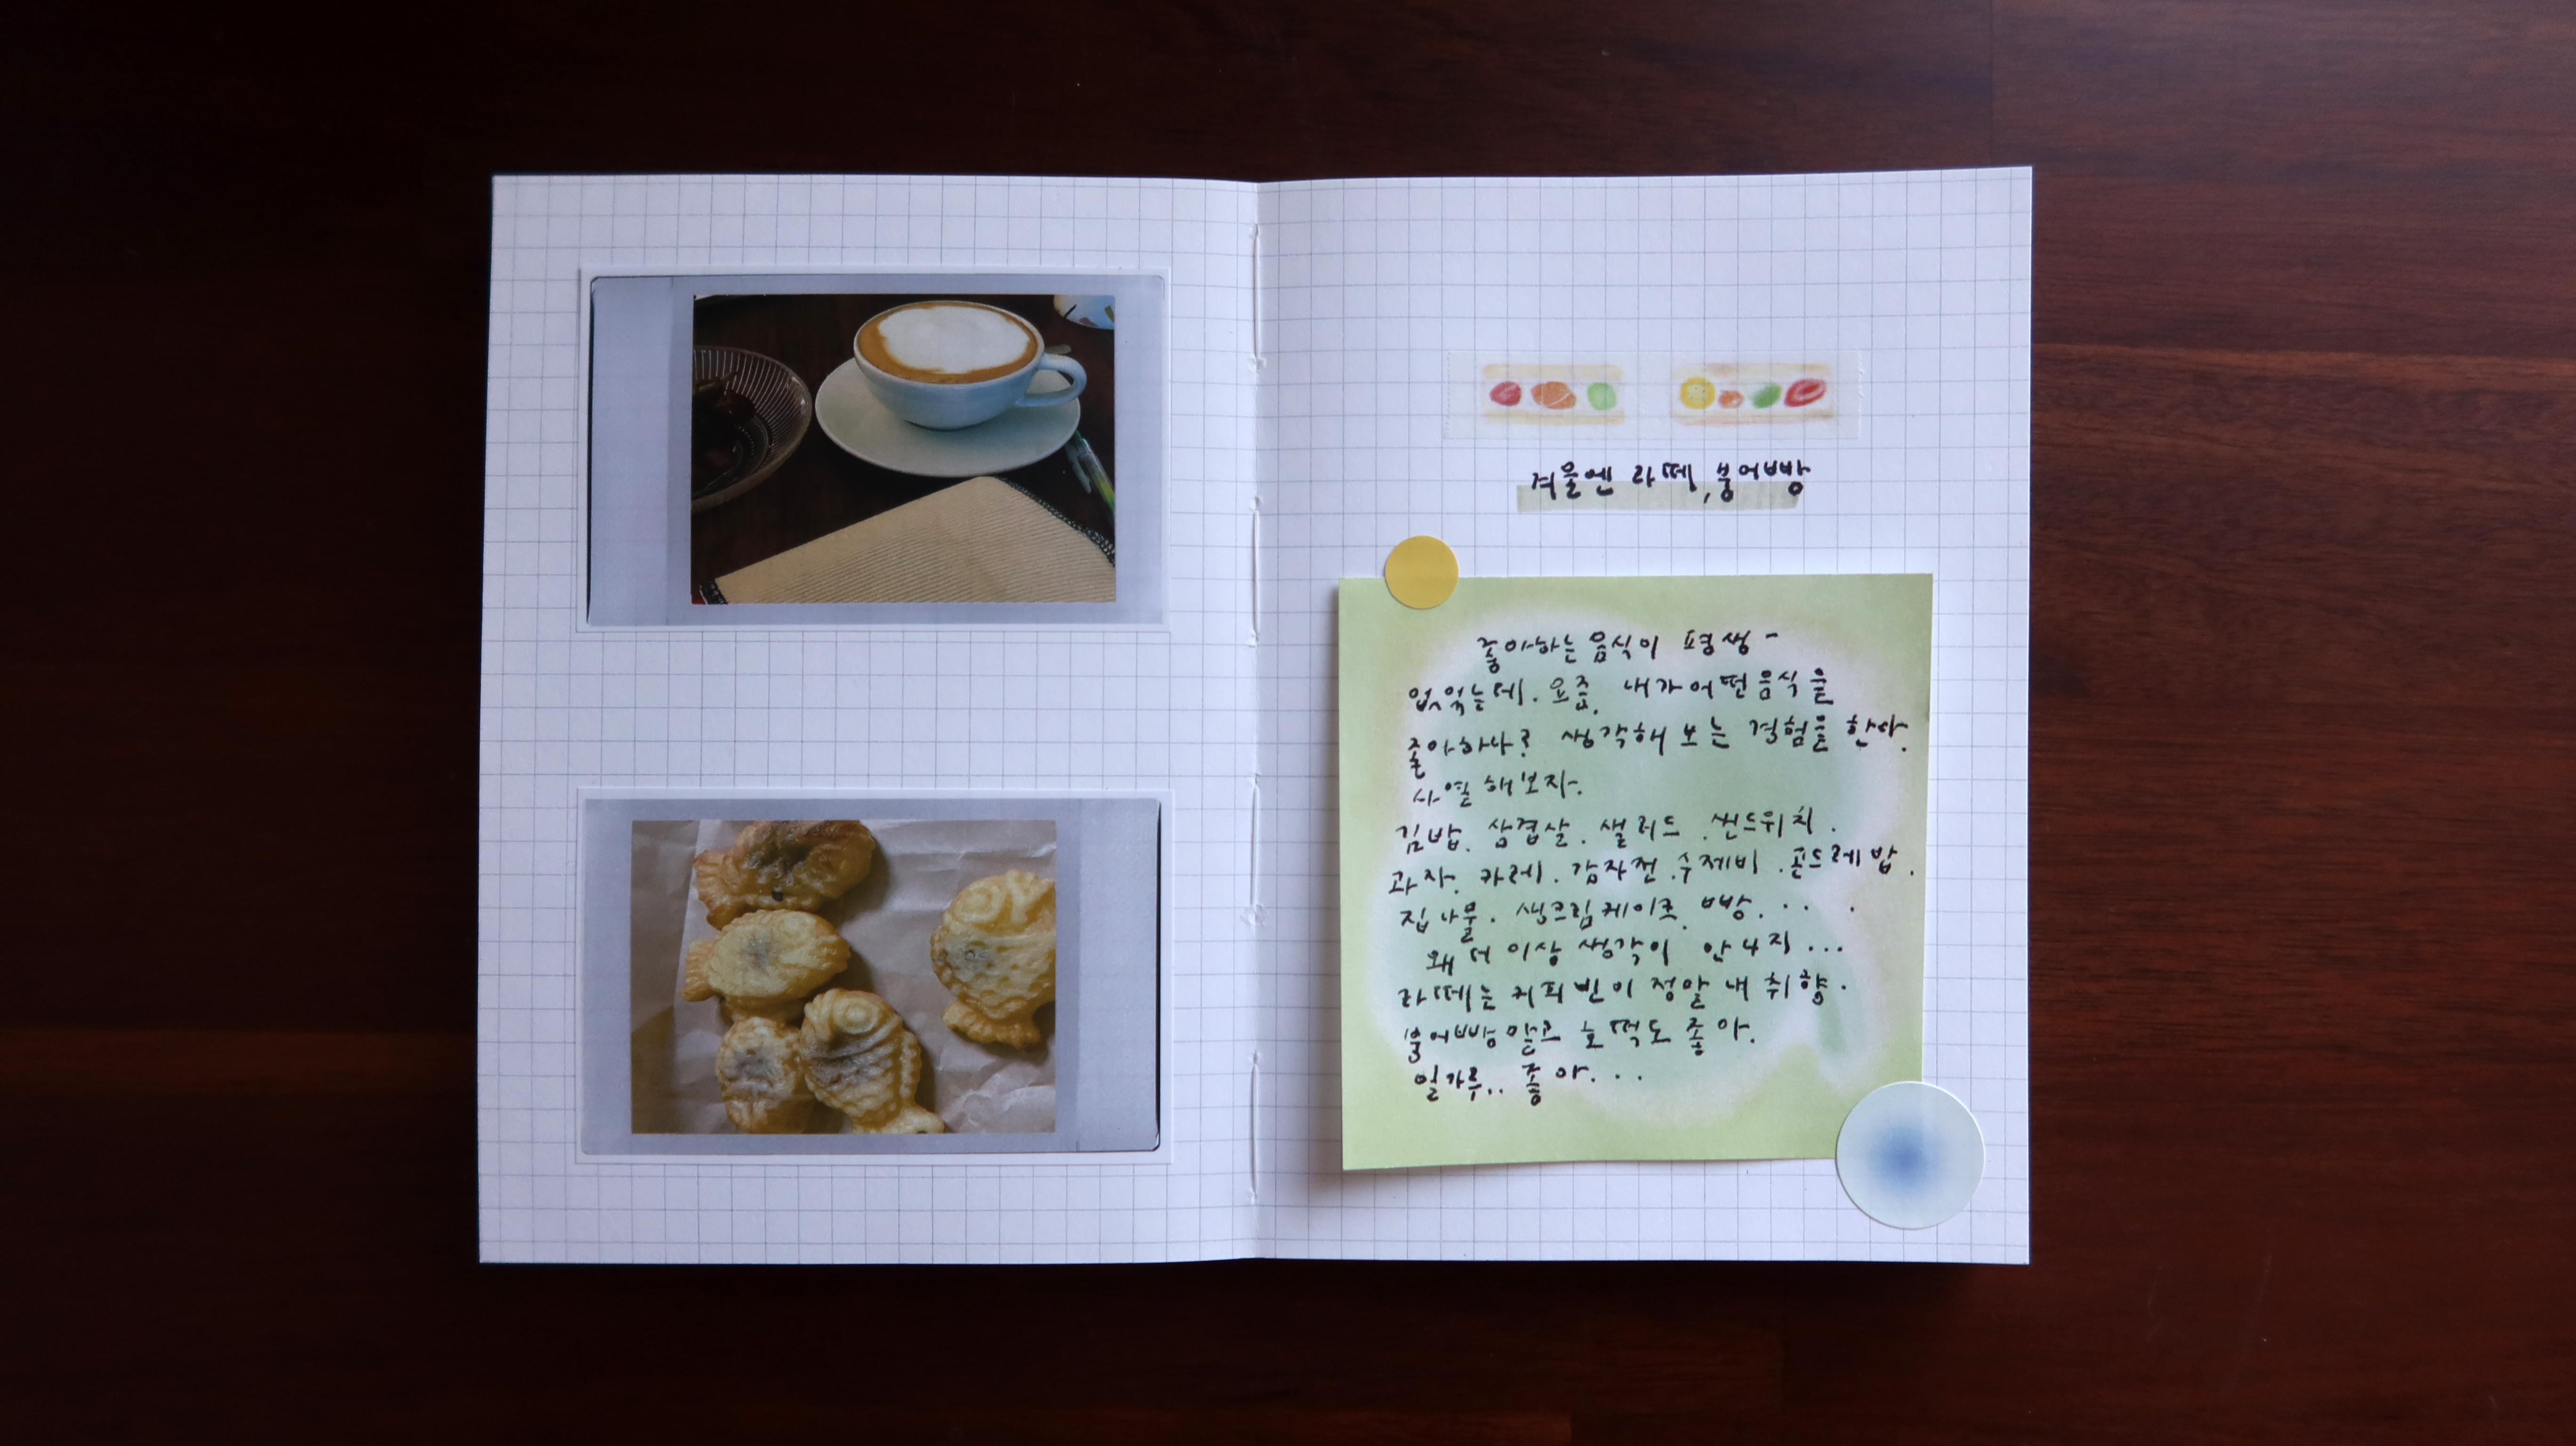 겨울엔 라떼, 붕어빵
좋아하는 음식이 평생 -
없었는데. 요즘. 내가 어떤 음식을
좋아하나? 생각해 보는 경험을 한다.
나열해보자.
김밥. 삼겹살. 샐러드. 샌드위치.
과자. 카레. 감자전. 수제비. 곤드레밥.
집나물. 생크림케이크. 빵. . . .
왜 더 이상 생각이 안 나지...
라떼는 커피빈이 정말 내 취향.
붕어빵 말고 호떡도 좋아.
밀가루.. 좋아. . .